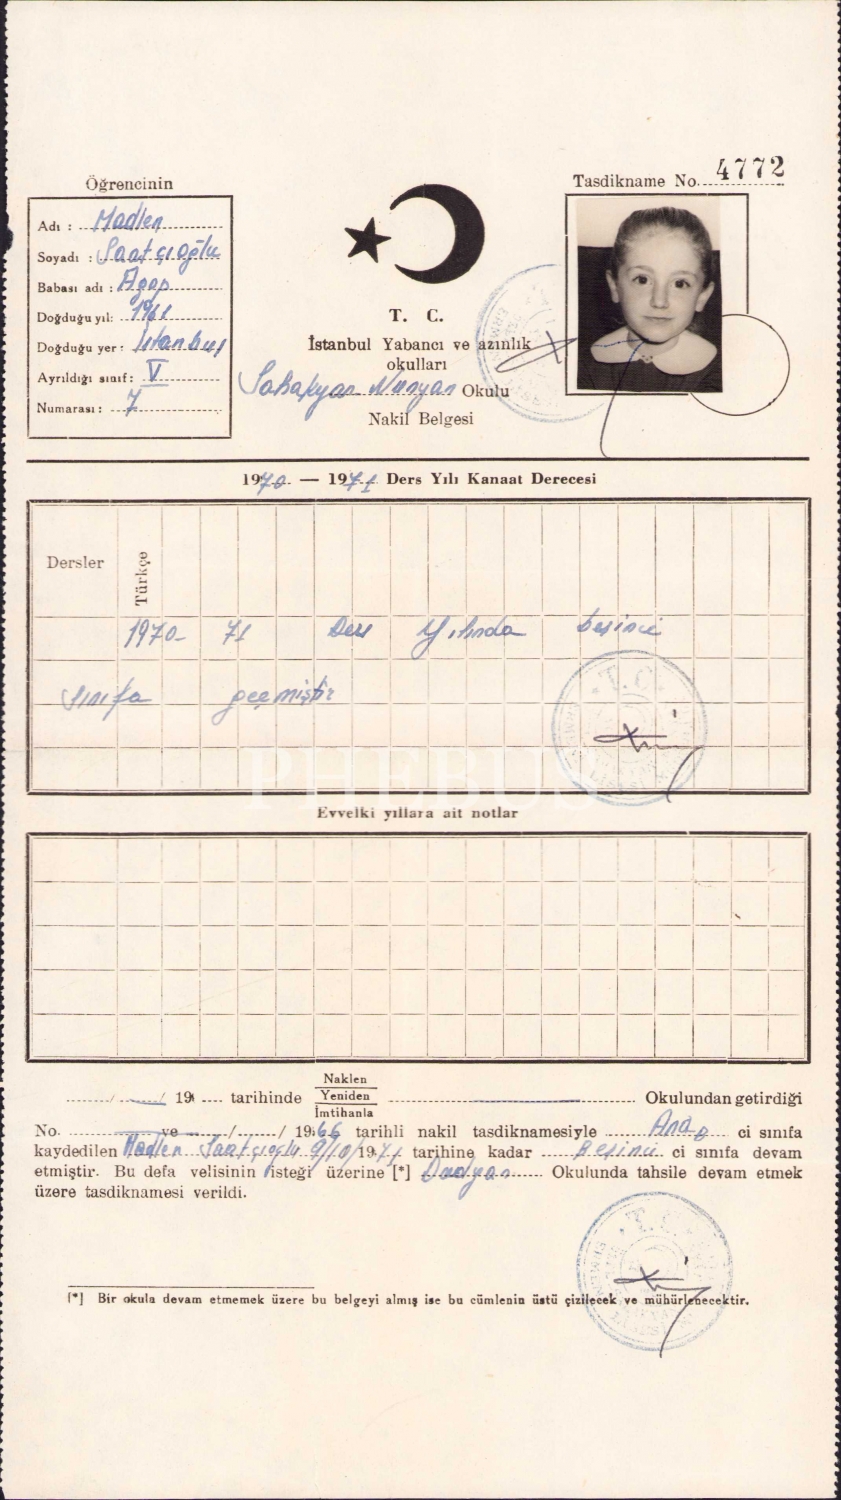 Öğrencinin
Adı : Madlen
Soyadı : Saatçıoğlu
Babası adı : Agop
Doğduğu yıl: 1961
Doğduğu yer : İstanbul
Ayrıldığı sınıf: V
Numarası : 7
T. C.
İstanbul Yabancı ve azınlık
okulları
Sahakyan Nunyan Okulu
Nakil Belgesi
Tasdikname No. 4772
1970 — 1971 Ders Yılı Kanaat Derecesi
Dersler
Türkçe
1970- 71 Ders Yılında beşinci
sınıfa geçmiştir
T.C.
PHEBUS
Evvelki yıllara ait notlar
/ / 19 tarihinde Naklen Yeniden İmtihanla Okulundan getirdiği
No. ve / / 1966 tarihli nakil tasdiknamesiyle Ana ci sınıfa
kaydedilen Madlen Saatçıoğlu 9/10/1971 tarihine kadar Beşinci ci sınıfa devam
etmiştir. Bu defa velisinin isteği üzerine [*] Dadyan Okulunda tahsile devam etmek
üzere tasdiknamesi verildi.
T.C.
[*] Bir okula devam etmemek üzere bu belgeyi almış ise bu cümlenin üstü çizilecek ve mühürlenecektir.